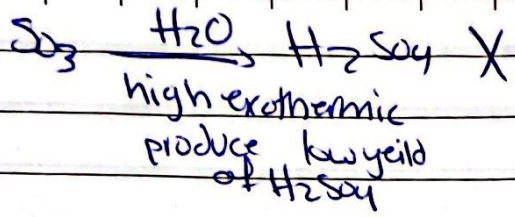 SO3 H2O → H2SO4 X
high exothermic
produce low yeild
of H2SO4